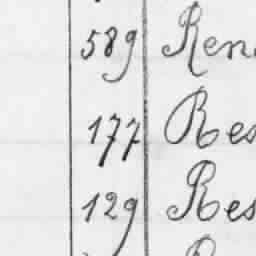 589 Ren
177 Res
129 Res